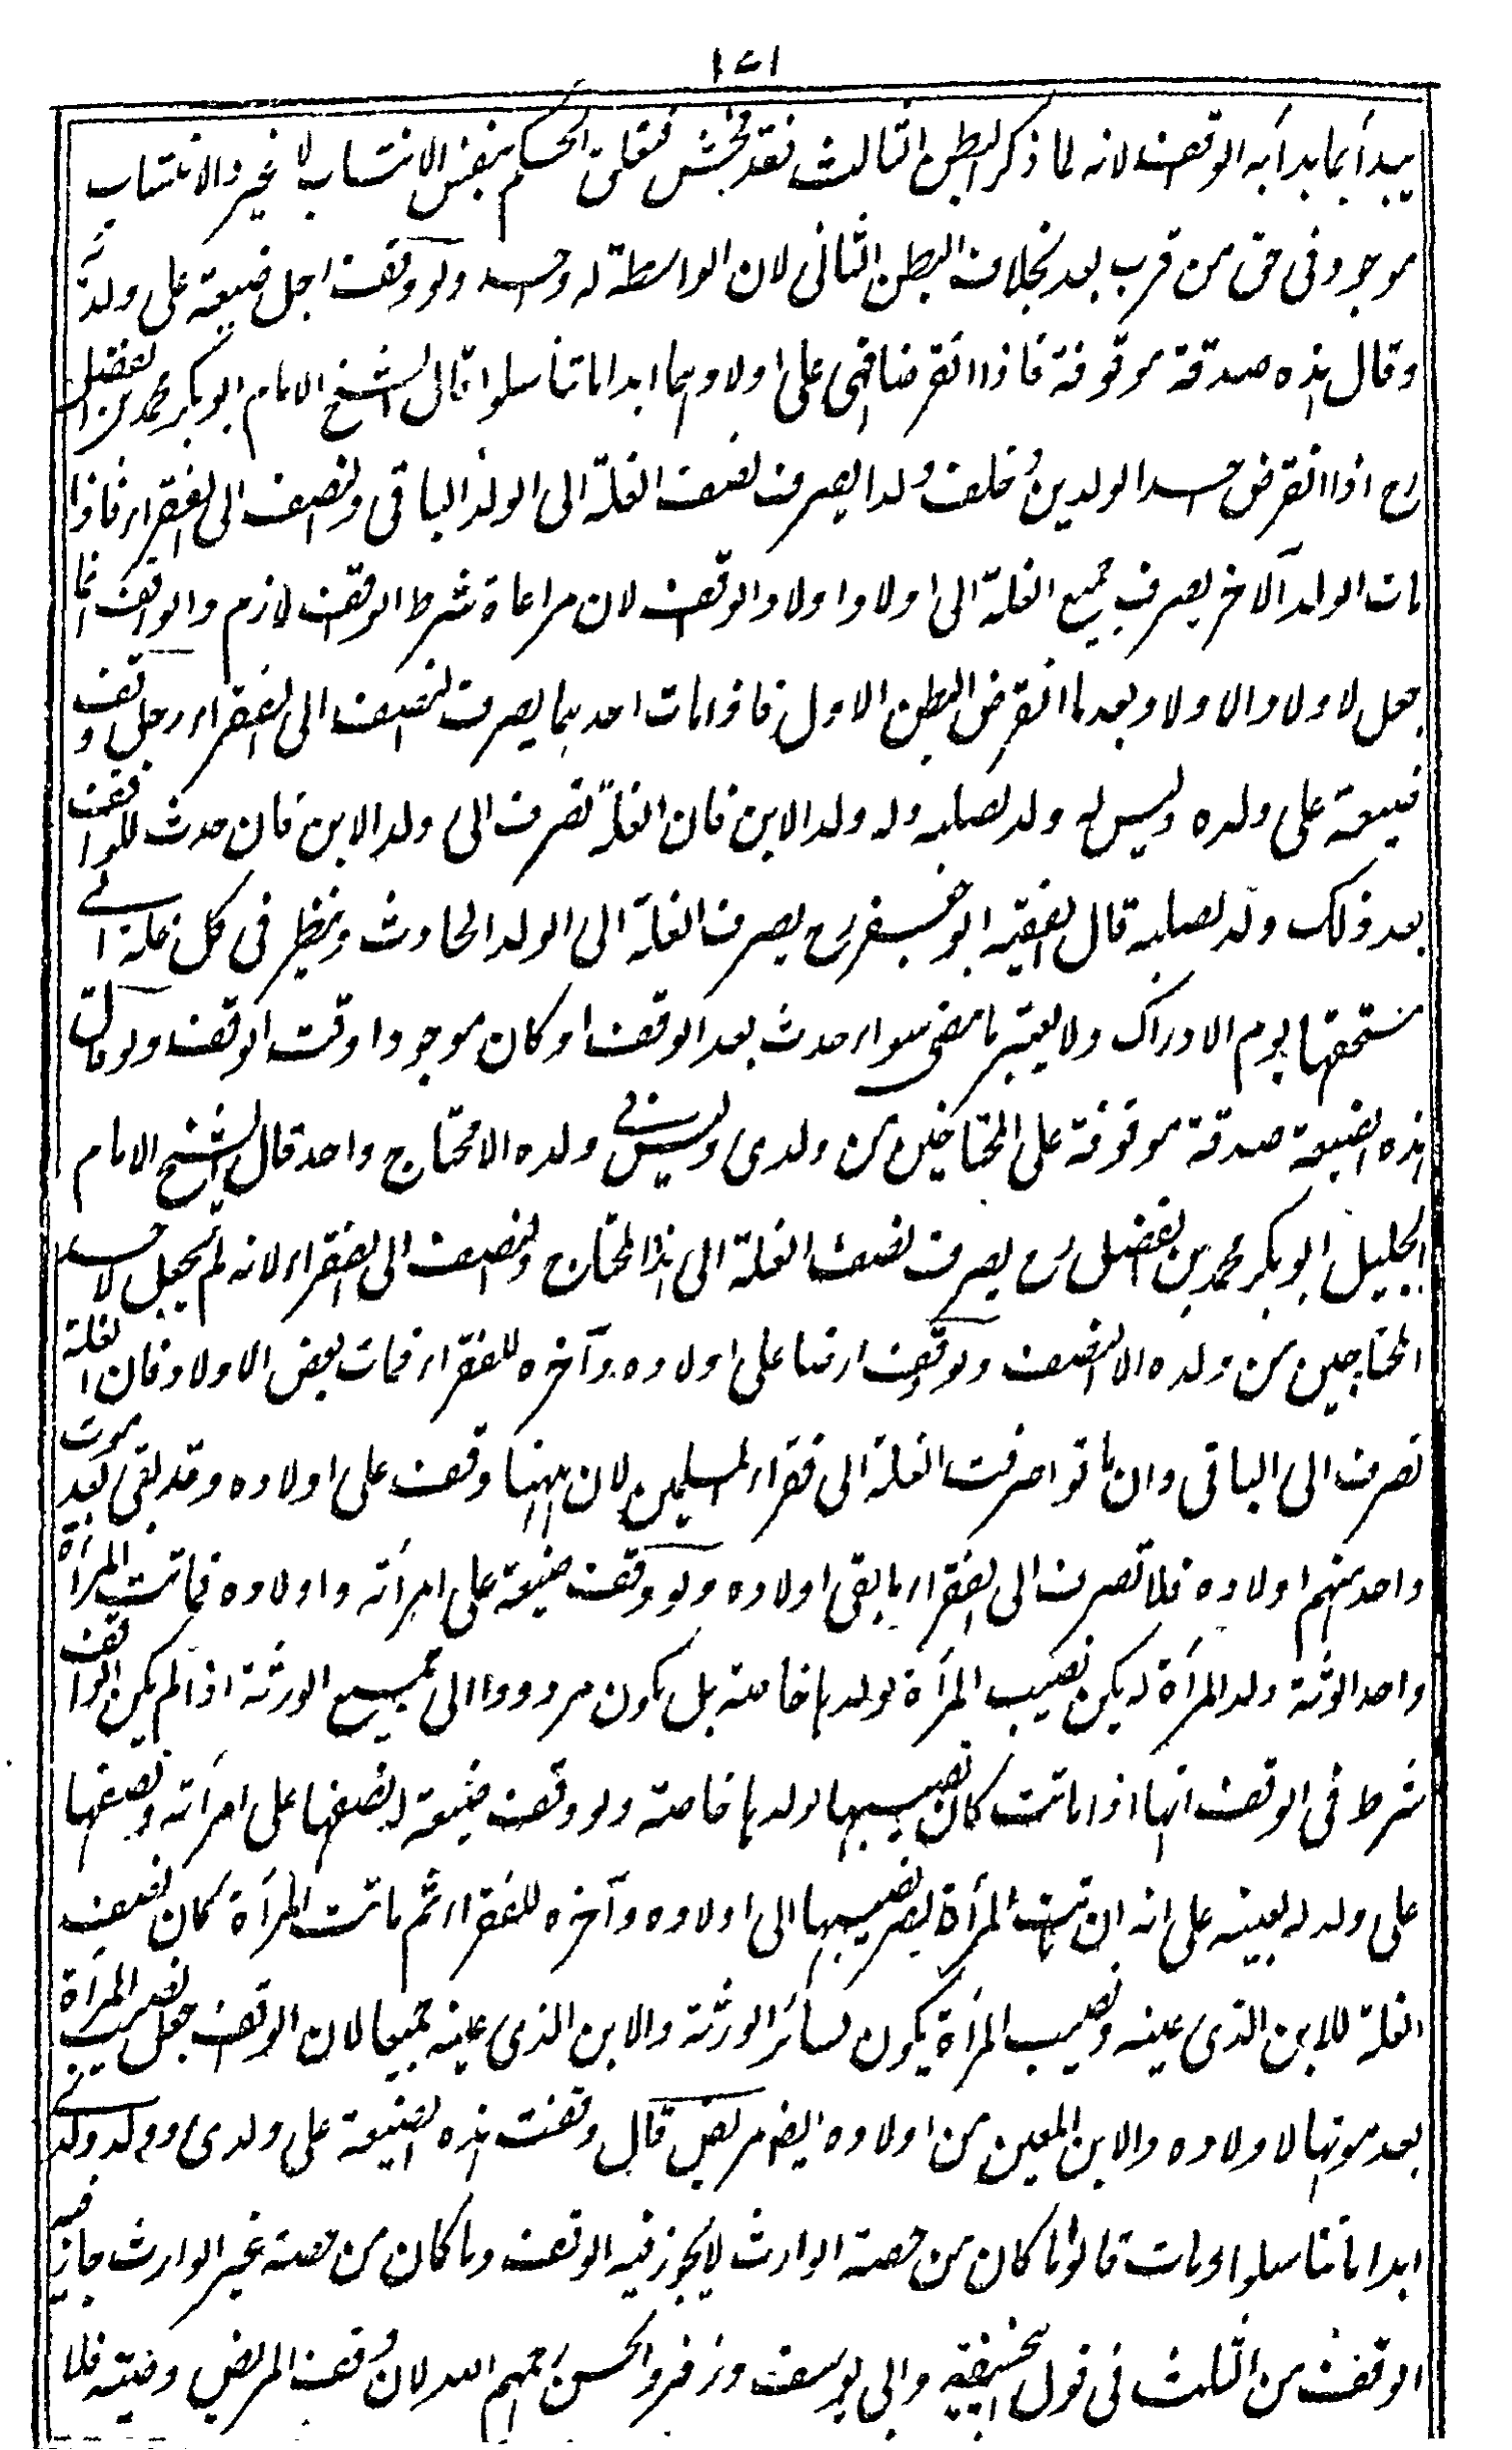 ١٤١
يبدأ بما بدأ به الوقف لانه لما ذكر البطن الثالث فقد فحش فتعلق الحكم بنفس الانتساب لا غير والانتساب
موجود فى حق من قرب بعد بخلاف البطن الثانى لان الواسطة له واحد ولو وقف رجل ضيعة على ولديه
وقال هذه صدقة موقوفة فاذا انقرضا فهى على اولادهما ابدا ما تناسلوا قال الشيخ الامام ابو بكر محمد بن الفضل
رح اذا انقرض احد الولدين وخلف ولدا يصرف نصف الغلة الى الولد الباقى والنصف الى الفقراء فاذا
مات الولد الآخر يصرف جميع الغلة الى اولاد اولاد الوقف لان مراعاة شرط الوقف لازم والواقف انما
جعل لاولاد الاولاد بعد ما انقرض البطن الاول فاذا مات احدهما يصرف النصف الى الفقراء رجل وقف
ضيعة على ولده وليس له ولد لصلبه وله ولد الابن فان الغلة تصرف الى ولد الابن فان حدث للواقف
بعد ذلك ولد لصلبه قال الفقيه ابو جعفر رح يصرف الغلة الى الولد الحادث وينظر فى كل غلة الى
مستحقها يوم الادراك ولا يعتبر ما مضى سواء حدث بعد الوقف او كان موجودا وقت الوقف ولو قال
هذه الضيعة صدقة موقوفة على المحتاجين من ولدى وليس فى ولده الا محتاج واحد قال الشيخ الامام
الجليل ابو بكر محمد بن الفضل رح يصرف نصف الغلة الى هذا المحتاج والنصف الى الفقراء لانه لم يجعل لاحد
المحتاجين من ولده الا النصف ولو وقف ارضا على اولاده وآخره للفقراء فمات بعض الاولاد فان الغلة
تصرف الى الباقى وان ماتوا صرفت الغلة الى فقراء المسلمين لان ههنا وقف على اولاده وقد بقى بعد موت
واحد منهم اولاده فلا تصرف الى الفقراء ما بقى اولاده ولو وقف ضيعة على امرأته واولاده فماتت المرأة
واحد الورثة ولد المرأة لم يكن نصيب المرأة لولدها خاصة بل يكون مردودا الى جميع الورثة اذا لم يكن الواقف
شرط فى الوقف انها اذا ماتت كان نصيبها لولدها خاصة ولو وقف ضيعة له نصفها على امرأته ونصفها
على ولد له بعينه على انه ان ماتت المرأة يصرف نصيبها الى اولاده وآخره للفقراء ثم ماتت المرأة كان نصف
الغلة للابن الذى عينه ونصيب المرأة يكون لسائر الورثة والابن الذى عينه جميعا لان الوقف جعل نصيب المرأة
بعد موتها لاولاده والابن المعين من اولاده ايض مريض قال وقفت هذه الضيعة على ولدى وولد ولدى
ابدا ما تناسلوا ومات قالوا ما كان من حصة الوارث لا يجوز فيه الوقف وما كان من حصة غير الوارث جاز فيه
الوقف من الثلث فى قول ابيحنيفة وابى يوسف وزفر والحسن رحمهم الله لان وقف المريض وصية فلا